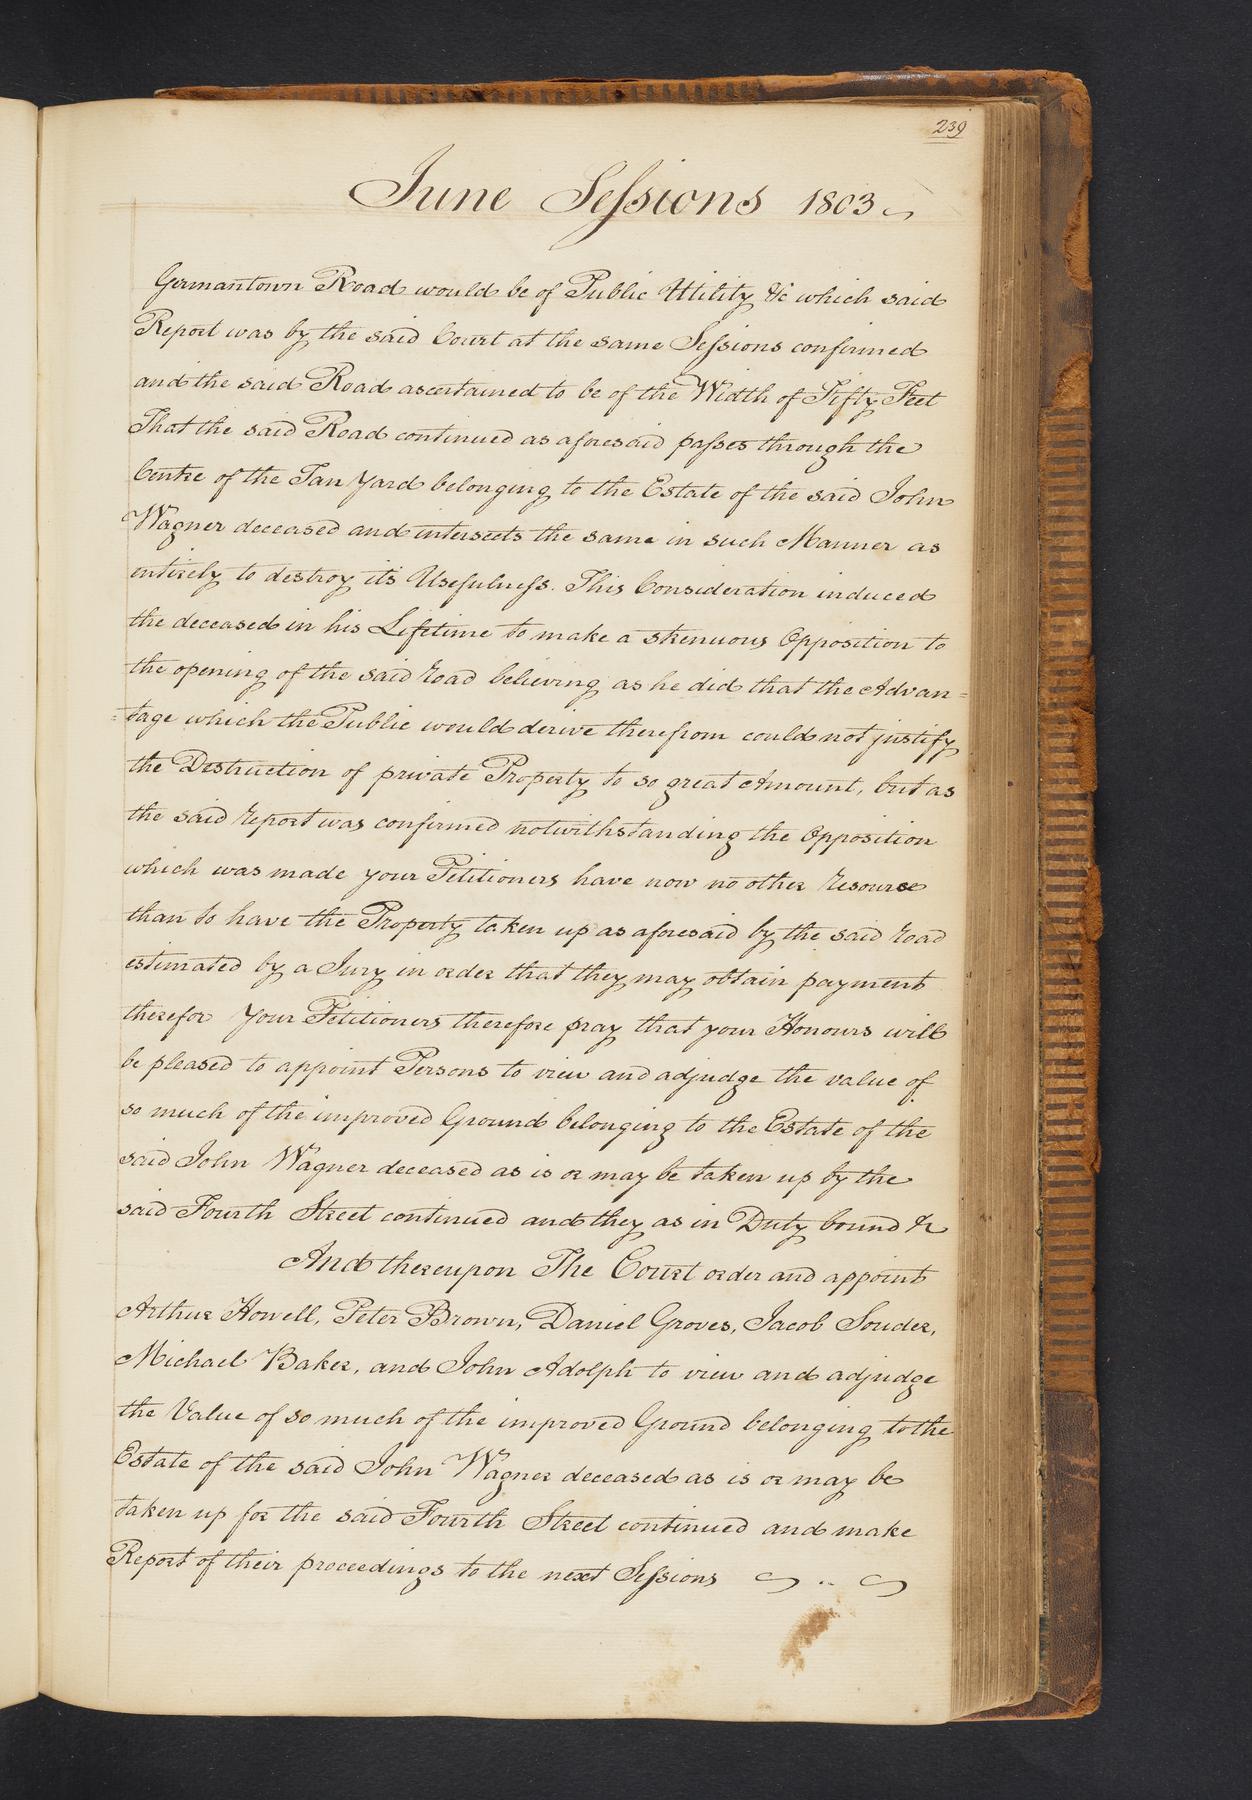 239
June Sessions 1803
Germantown Road would be of Public Utility &c which said
Report was by the said Court at the same Sessions confirmed
and the said Road ascertained to be of the Width of Fifty Feet
That the said Road continued as aforesaid passes through the
Centre of the Tan Yard belonging to the Estate of the said John
Wagner deceased and intersects the same in such Manner as
entirely to destroy its Usefulness. This Consideration induced
the deceased in his Lifetime to make a strenuous Opposition to
the opening of the said road believing as he did that the Advan=
=tage which the Public would derive therefrom could not justify
the Destruction of private Property to so great Amount, but as
the said report was confirmed notwithstanding the Opposition
which was made your Petitioners have now no other resource
than to have the Property taken up as aforesaid by the said road
estimated by a Jury in order that they may obtain payment
therefor Your Petitioners therefore pray that your Honours will
be pleased to appoint Persons to view and adjudge the value of
so much of the improved Ground belonging to the Estate of the
said John Wagner deceased as is or may be taken up by the
said Fourth Street continued and they as in Duty bound &c
And thereupon The Court order and appoint
Arthur Howell, Peter Brown, Daniel Groves, Jacob Souder,
Michael Baker, and John Adolph to view and adjudge
the Value of so much of the improved Ground belonging to the
Estate of the said John Wagner deceased as is or may be
taken up for the said Fourth Street continued and make
Report of their proceedings to the next Sessions